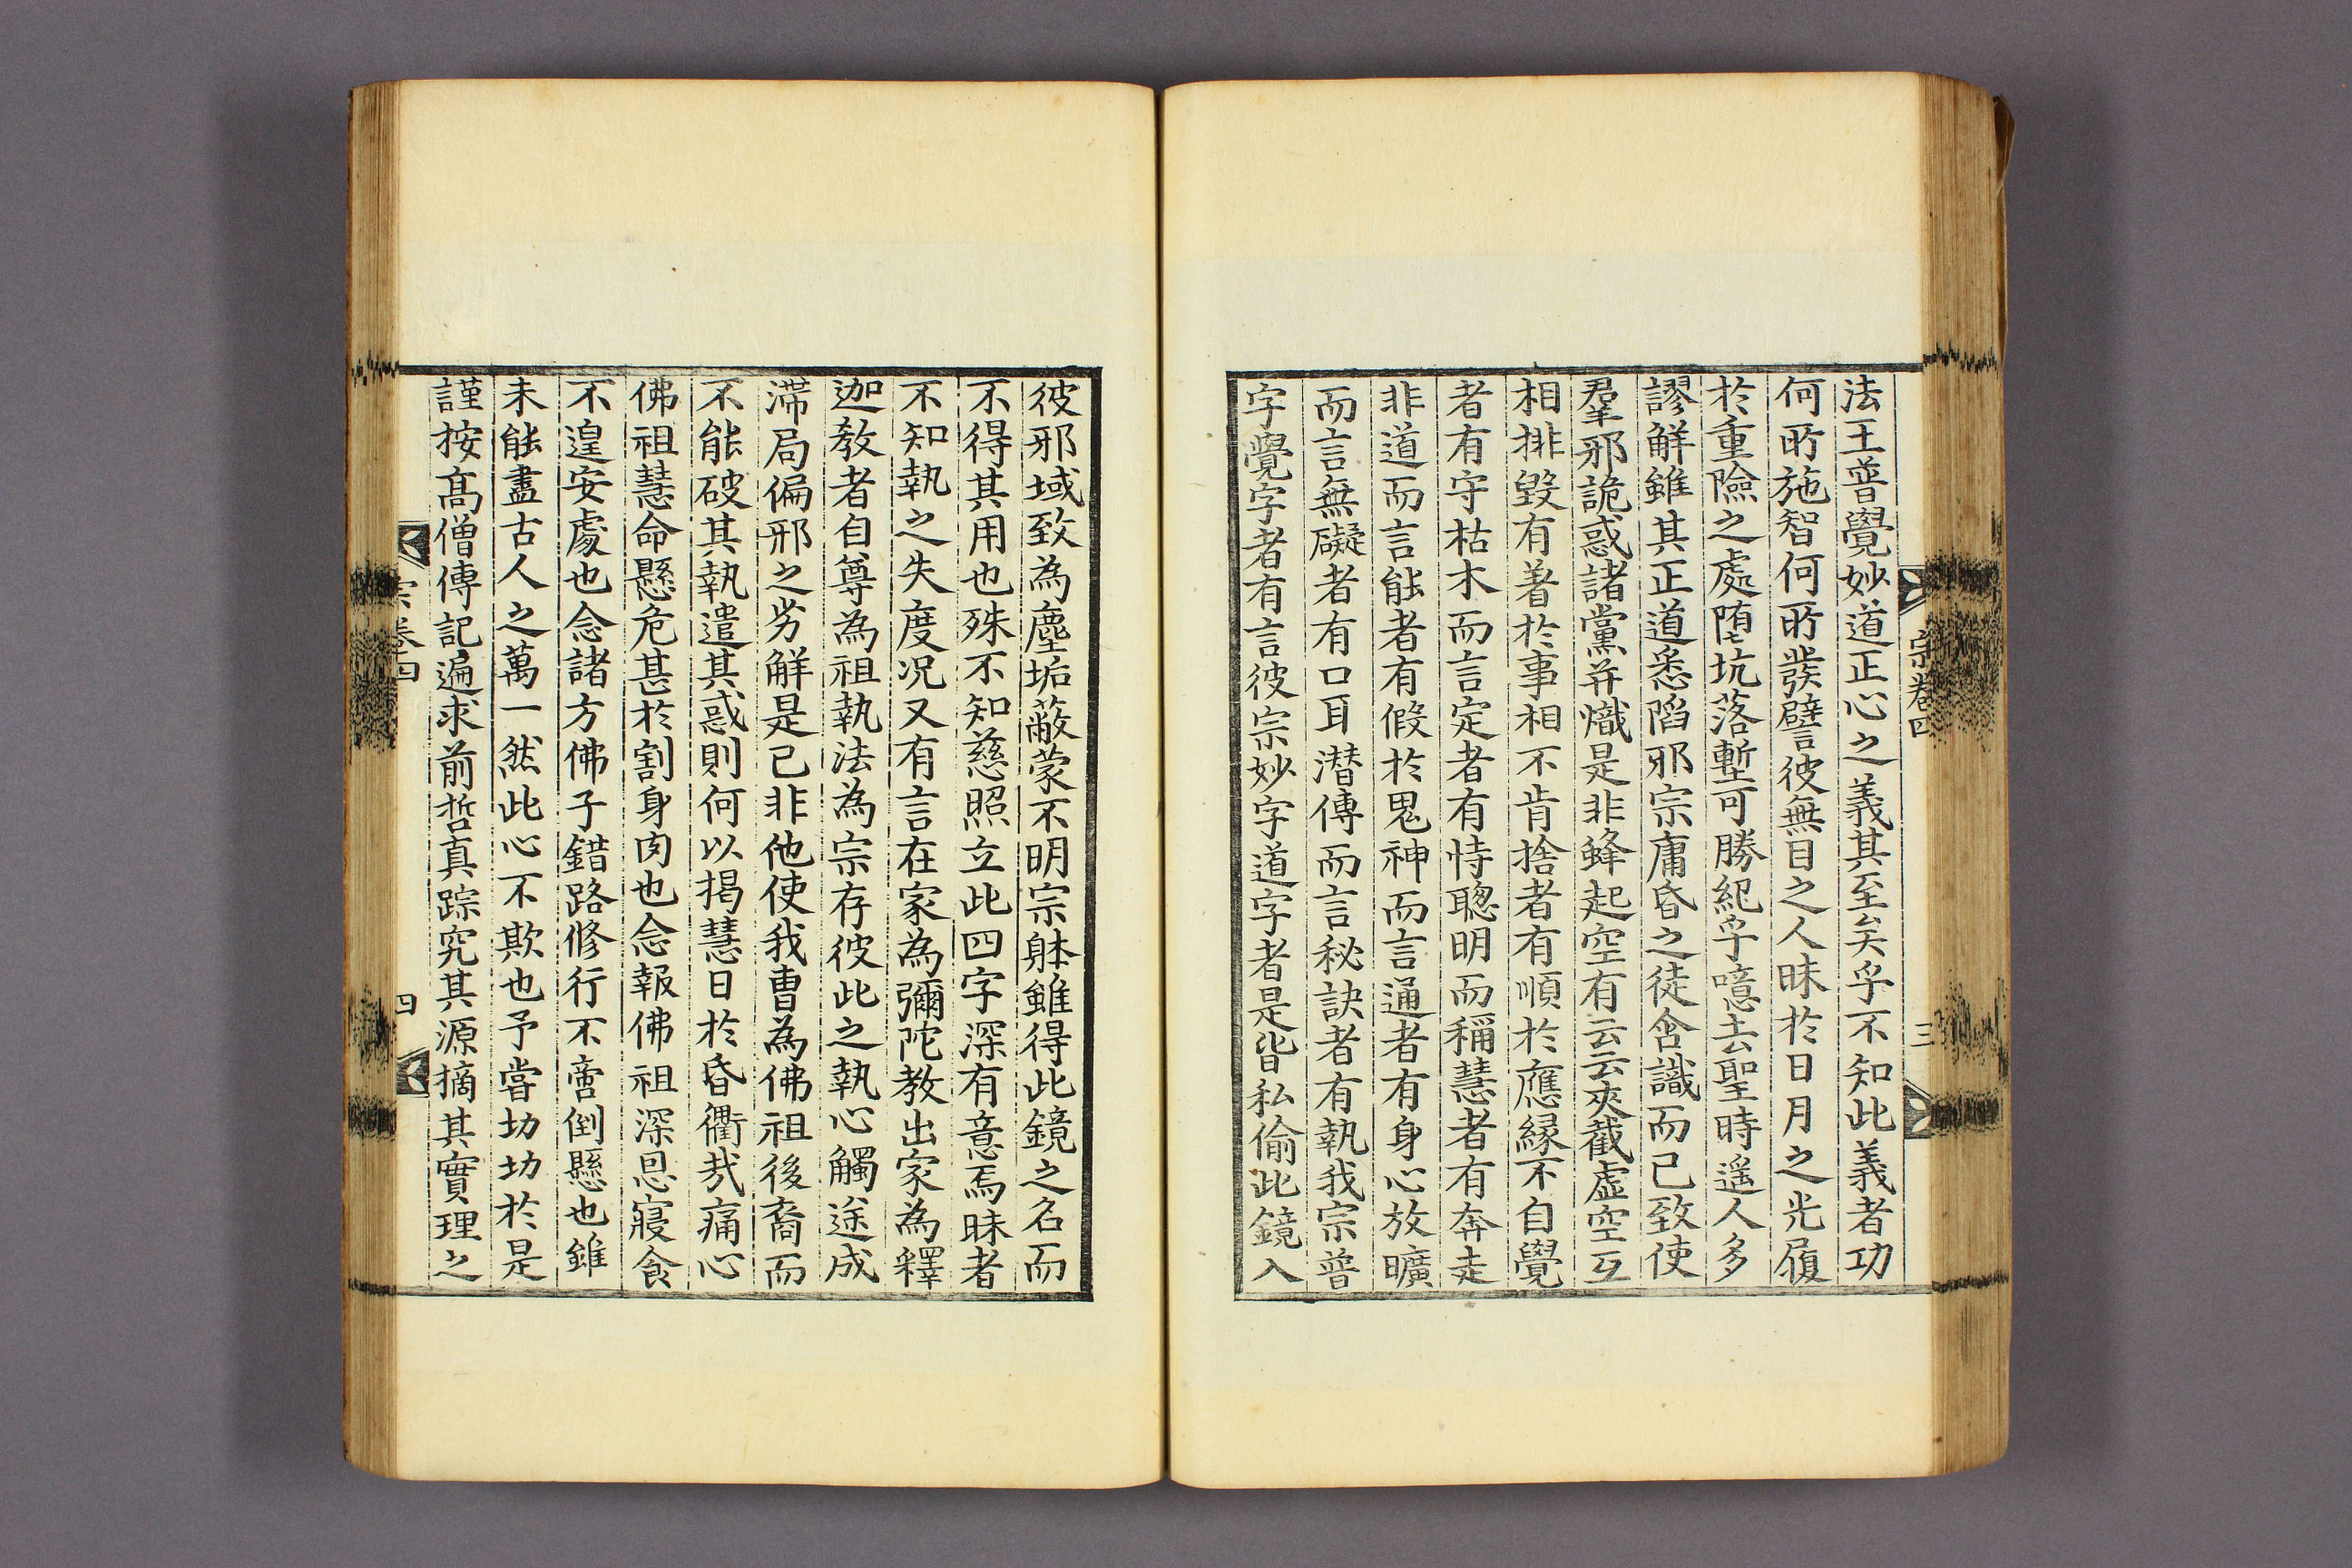 法王普覺妙道正心之義其至矣乎不知此義者功
何所施智何所發譬彼無目之人昧於日月之光履
於重險之處墮坑落塹可勝紀乎噫去聖時遥人多
謬解雖其正道悉陷邪宗庸昏之徒含識而已致使
羣邪詭惑諸黨并熾是非蜂起空有云云夾截虛空互
相排毀有著於事相不肯捨者有順於應緣不自覺
者有守枯木而言定者有恃聰明而稱慧者有奔走
非道而言能者有假於鬼神而言通者有身心放曠
而言無礙者有口耳潜傳而言秘訣者有執我宗普
字覺字者有言彼宗妙字道字者是皆私偷此鏡入
宗卷四
三
彼邪域致為塵垢蔽蒙不明宗躰雖得此鏡之名而
不得其用也殊不知慈照立此四字深有意焉昧者
不知執之失度况又有言在家為彌陀教出家為釋
迦教者自尊為祖執法為宗存彼此之執心觸途成
滯局偏邪之劣解是已非他使我曹為佛祖後裔而
不能破其執遣其惑則何以揭慧日於昏衢哉痛心
佛祖慧命懸危甚於割身肉也念報佛祖深恩寢食
不遑安處也念諸方佛子錯路修行不啻倒懸也雖
未能盡古人之萬一然此心不欺也予嘗切切於是
謹按高僧傳記遍求前哲真踪究其源摘其實理之
宗卷四
四